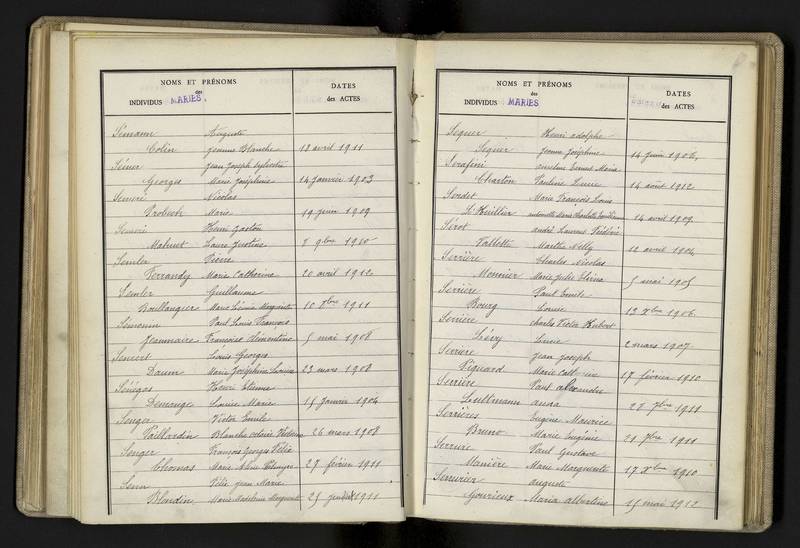 NOMS ET PRÉNOMS
des
INDIVIDUS MARIÉS.
DATES
des ACTES
Sémann Auguste
Colin Jeanne Blanche 18 avril 1911
Sémer Jean Joseph Sylvestre
Georges Marie Joséphine 14 janvier 1903
Semeré Nicolas
Probeck Marie 19 juin 1909
Semoir Henri Gaston
Mahuet Laure Justine 8 9bre 1910
Semler Pierre
Ferrandy Marie Catherine 20 avril 1912
Semler Guillaume
Boullanger Marie Léonie Marguerite 10 8bre 1911
Semonin Paul Louis François
Jeannaire Françoise Clémentine 5 mai 1908
Sencert Louis Georges
Daum Marie Joséphine Louise 23 mars 1908
Sénégas Henri Etienne
Demenge Louise Marie 15 janvier 1904
Senger Victor Emile
Paillardin Blanche 26 mars 1908
Senger François Georges Félix
Thomas Marie 27 février 1911
Senn Félix Jean Marie
Blondin Marie Madeleine Marguerite 25 1911
NOMS ET PRÉNOMS
des
INDIVIDUS MARIÉS
DATES
des ACTES
Sequer Henri adolphe
Sequer Jeanne Joséphine 14 juin 1906
Serafini Ernest Maria
Charton Pauline 14 août 1912
Serdet Marie François Louis
L'Huillier Marie Charlotte 14 avril 1909
Sérot andré Laurent Frédéric
Valette Marthe Nelly 12 avril 1904
Serrière Charles Nicolas
Monnier Marie Julie 5 mai 1905
Serrière Paul Emile
Bourg Louise 12 Xbre 1906
Serrière charles Victor Hubert
Lévy 2 mars 1907
Serrière Jean Joseph
Piquard Marie 17 février 1910
Serrière Paul alexandre
Lullmann anna 28 7bre 1911
Serrières Eugène Maurice
Bruno Marie Eugénie 21 7bre 1911
Serrure Paul Gustave
Manière Marie Marguerite 17 Xbre 1910
Serrurier auguste
Gourieux Maria albertine 15 mai 1912